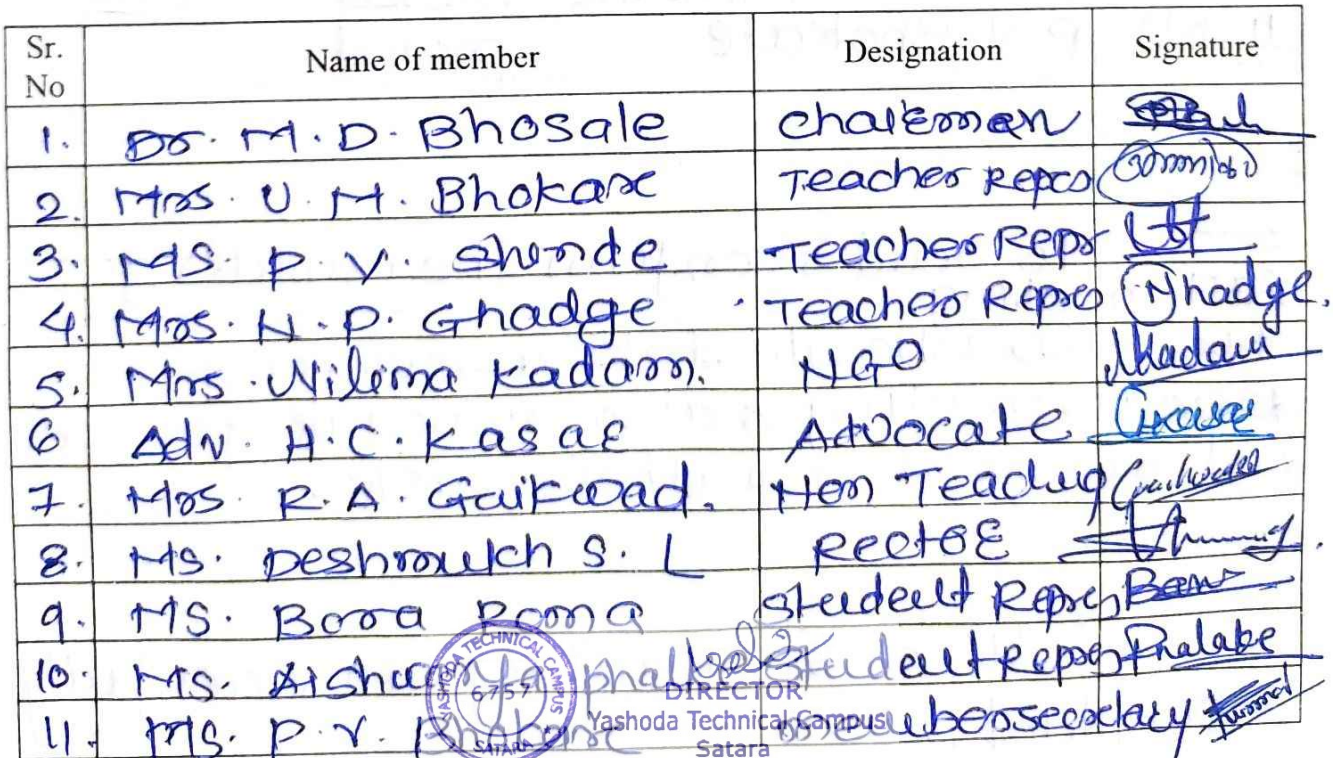 Sr. No Name of member Designation Signature
1. Dr. M. D. Bhosale Chairman
2. Mrs. U. M. Bhokare Teacher Repres
3. Ms. P. V. Shinde Teacher Repr
4. Mrs. N. P. Ghadge Teacher Repres Nhadge.
5. Mrs. Nilima Kadam. NGO NKadam
6 Adv. H. C. Kasar Advocate
7. Mrs. R. A. Gaikwad. Non Teaching Gaikwad
8. Ms. Deshmukh S. L Rector
9. Ms. Bora Roma Student Repres
10. Ms. Aishwarya phalke Student Repres Phalake
11. Ms. P. V. membersecretary
YASHODA TECHNICAL CAMPUS
6757
SATARA
DIRECTOR
Yashoda Technical Campus
Satara